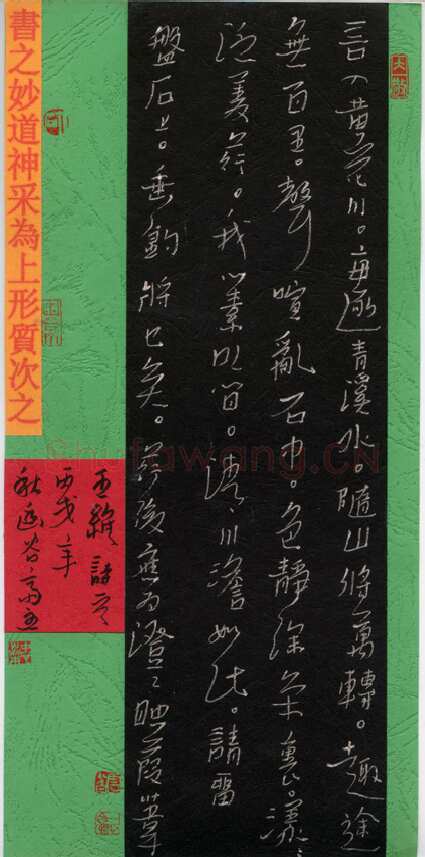 言入黃花川。每逐青溪水。隨山將萬轉。趣途
無百里。聲喧亂石中。色靜深松裏。漾〻
泛菱荇。我心素已閒。清川澹如此。請留
盤石上。垂釣將已矣。荇後應為澄〻映葭葦
書之妙道神采為上形質次之
王維詩
丙戌年
秋幽谷齋主
Shufawang.CN